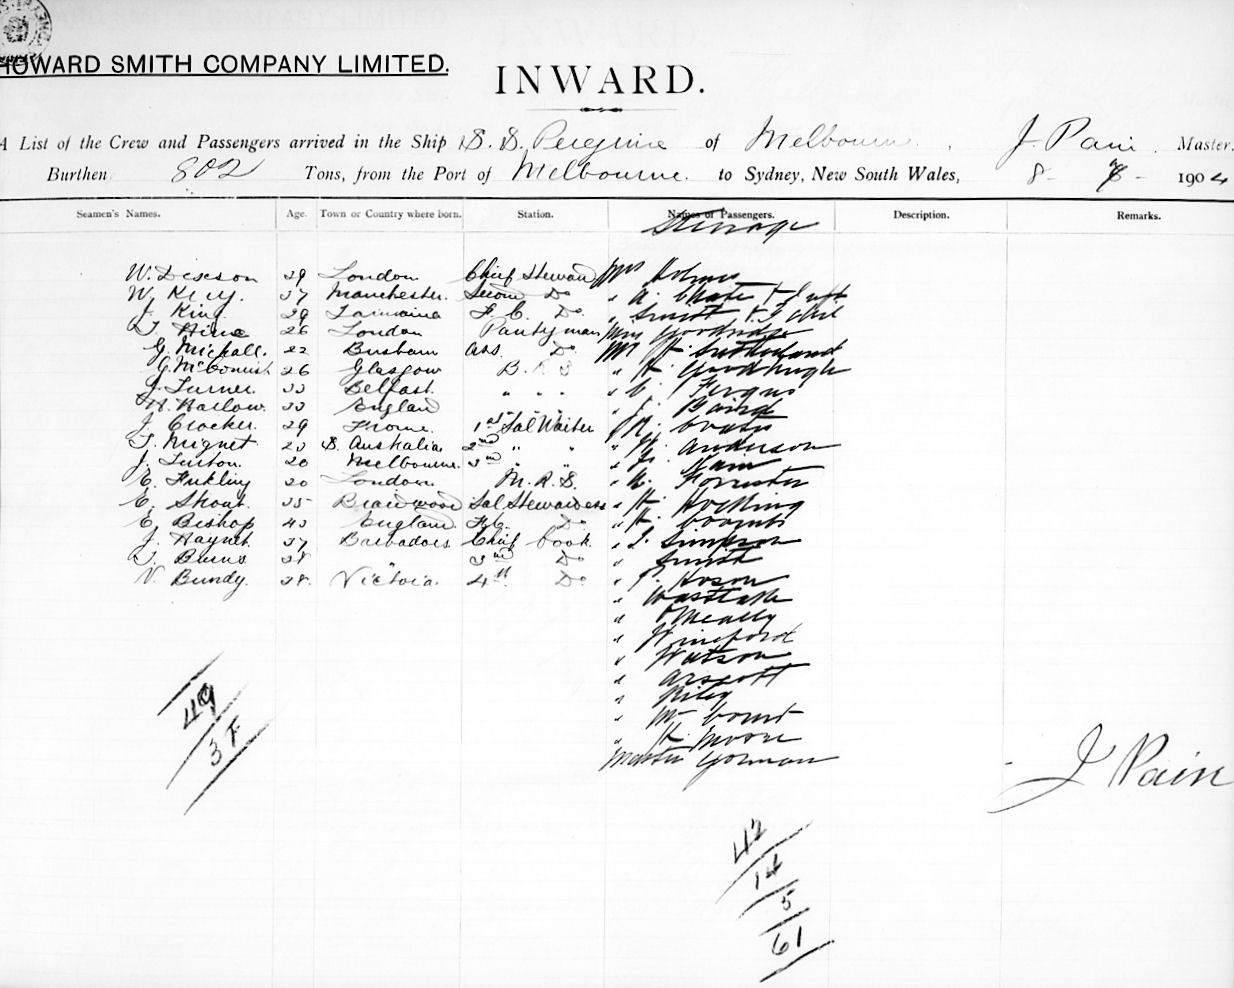 HOWARD SMITH COMPANY LIMITED.
INWARD.
A List of the Crew and Passengers arrived in the Ship S. S. Peregrine of Melbourne. J. Pain. Master.
Burthen 802 Tons, from the Port of Melbourne. to Sydney, New South Wales, 8 - 8 - 1904
Seamen's Names. Age. Town or Country where born. Station. Names of Passengers. Description. Remarks.
Steerage
W. 29 London Chief Steward Mr Holmes
W. 37 Manchester. Second Do " A.
J. King. 29 F. C. Do. " Smith
T. Hine 26 London Pantryman
G. Michall. 22 Ass. Do Mr H. Sutherland
26 Glasgow B. " H.
J. Turner. 33 Belfast. " " " " C. Fergus
H. Harlow. 33 England " J. Baird
J. Crocker. 29 Frome. 1st Sal Waiter " R. Coates
T. Mignet 23 S. Australia 2nd " " " Anderson
J. 20 Melbourne. 3rd " " " Kain
E. 20 London M. R. S. " Forrester
E. 35 Braidwood Sal Stewardess " H. Hocking
E. Bishop 43 England F. C. Do " H. Coombs
J. 37 Barbadoes Chief Cook " Simpson
T. Burns 38 " 3rd Do " Smith
V. Bundy. 28 Victoria. 4th Do " Hoson
" Wastlake
" OMeally
" Winsford
" Watson
" Arscott
" Riley
"
" H. Moore
Master Gorman
49
37
J Pain
42
14
5
61